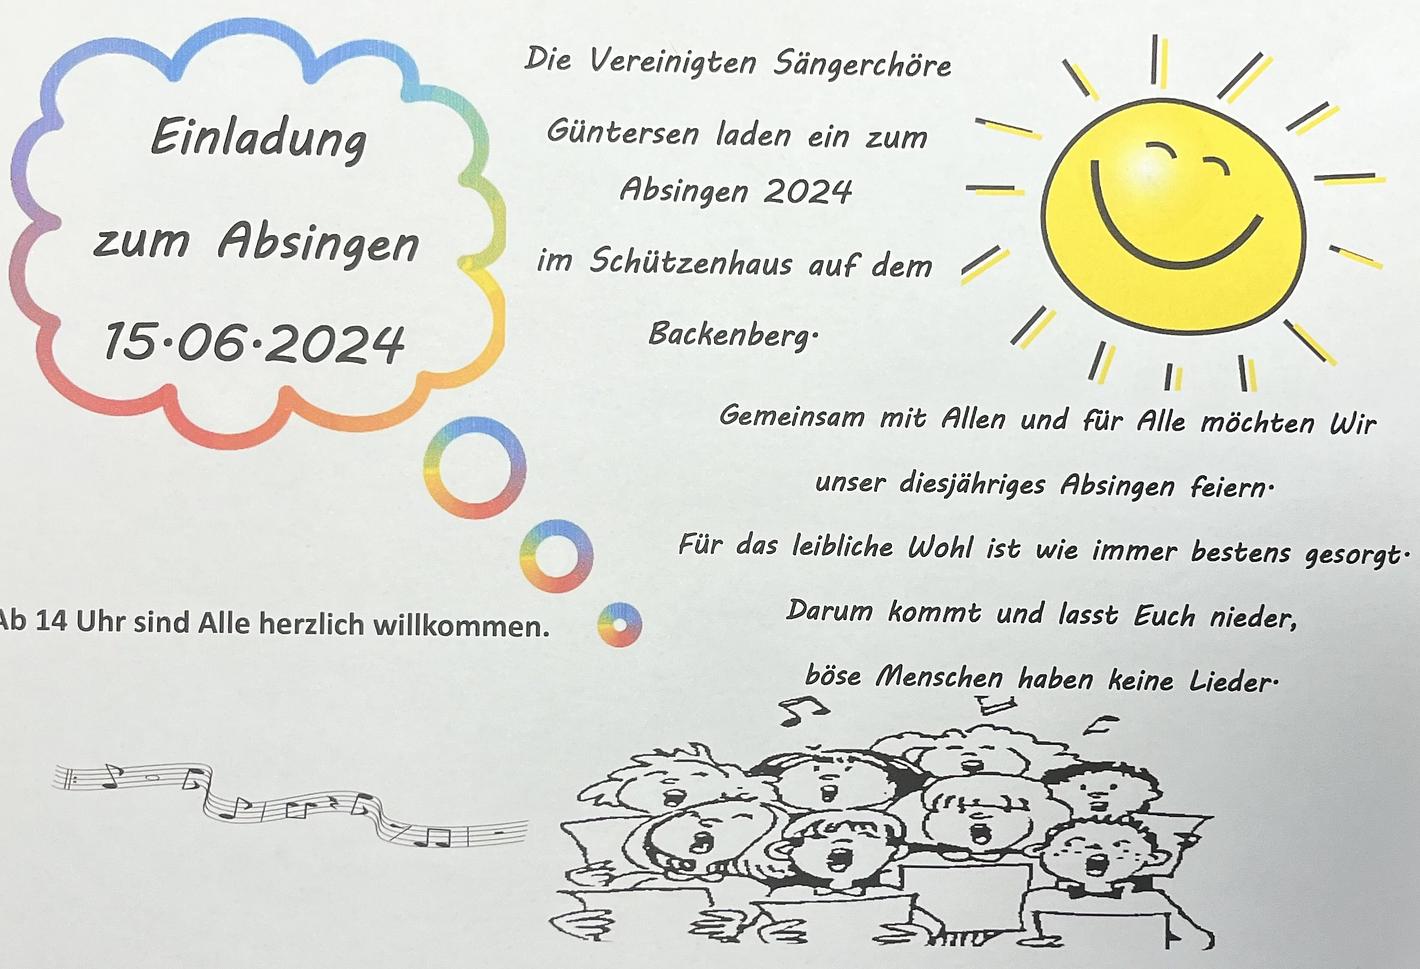 Einladung
zum Absingen
15.06.2024
Die Vereinigten Sängerchöre
Güntersen laden ein zum
Absingen 2024
im Schützenhaus auf dem
Backenberg.
Gemeinsam mit Allen und für Alle möchten Wir
unser diesjähriges Absingen feiern.
Für das leibliche Wohl ist wie immer bestens gesorgt.
Darum kommt und lasst Euch nieder,
böse Menschen haben keine Lieder.
Ab 14 Uhr sind Alle herzlich willkommen.